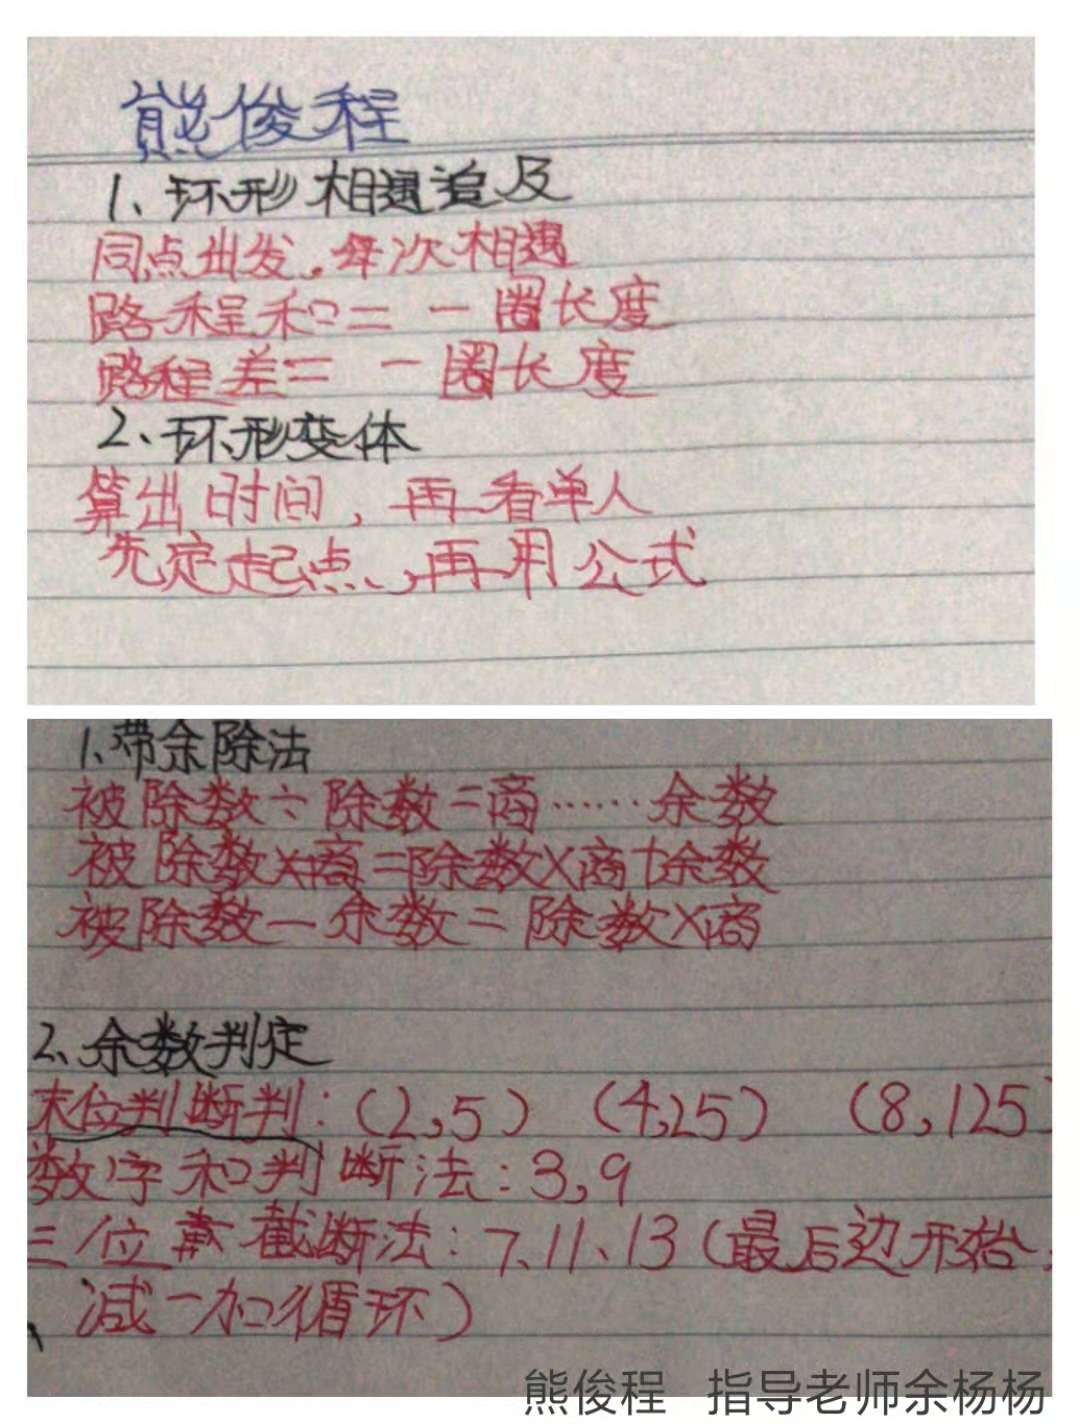 熊俊程
1、环形相遇追及
同点出发。每次相遇
路程和= 一圈长度
路程差= 一圈长度
2、环形变体
算出时间，再看单人
先定起点，再用公式
1、带余除法
被除数÷除数=商……余数
被除数×商=除数×商+余数
被除数-余数=除数×商
2、余数判定
末位判断判：(2,5) (4,25) (8,125)
数字和判断法：3,9
三位截断法：7、11、13(最后边开始
减一加循环)
熊俊程 指导老师余杨杨